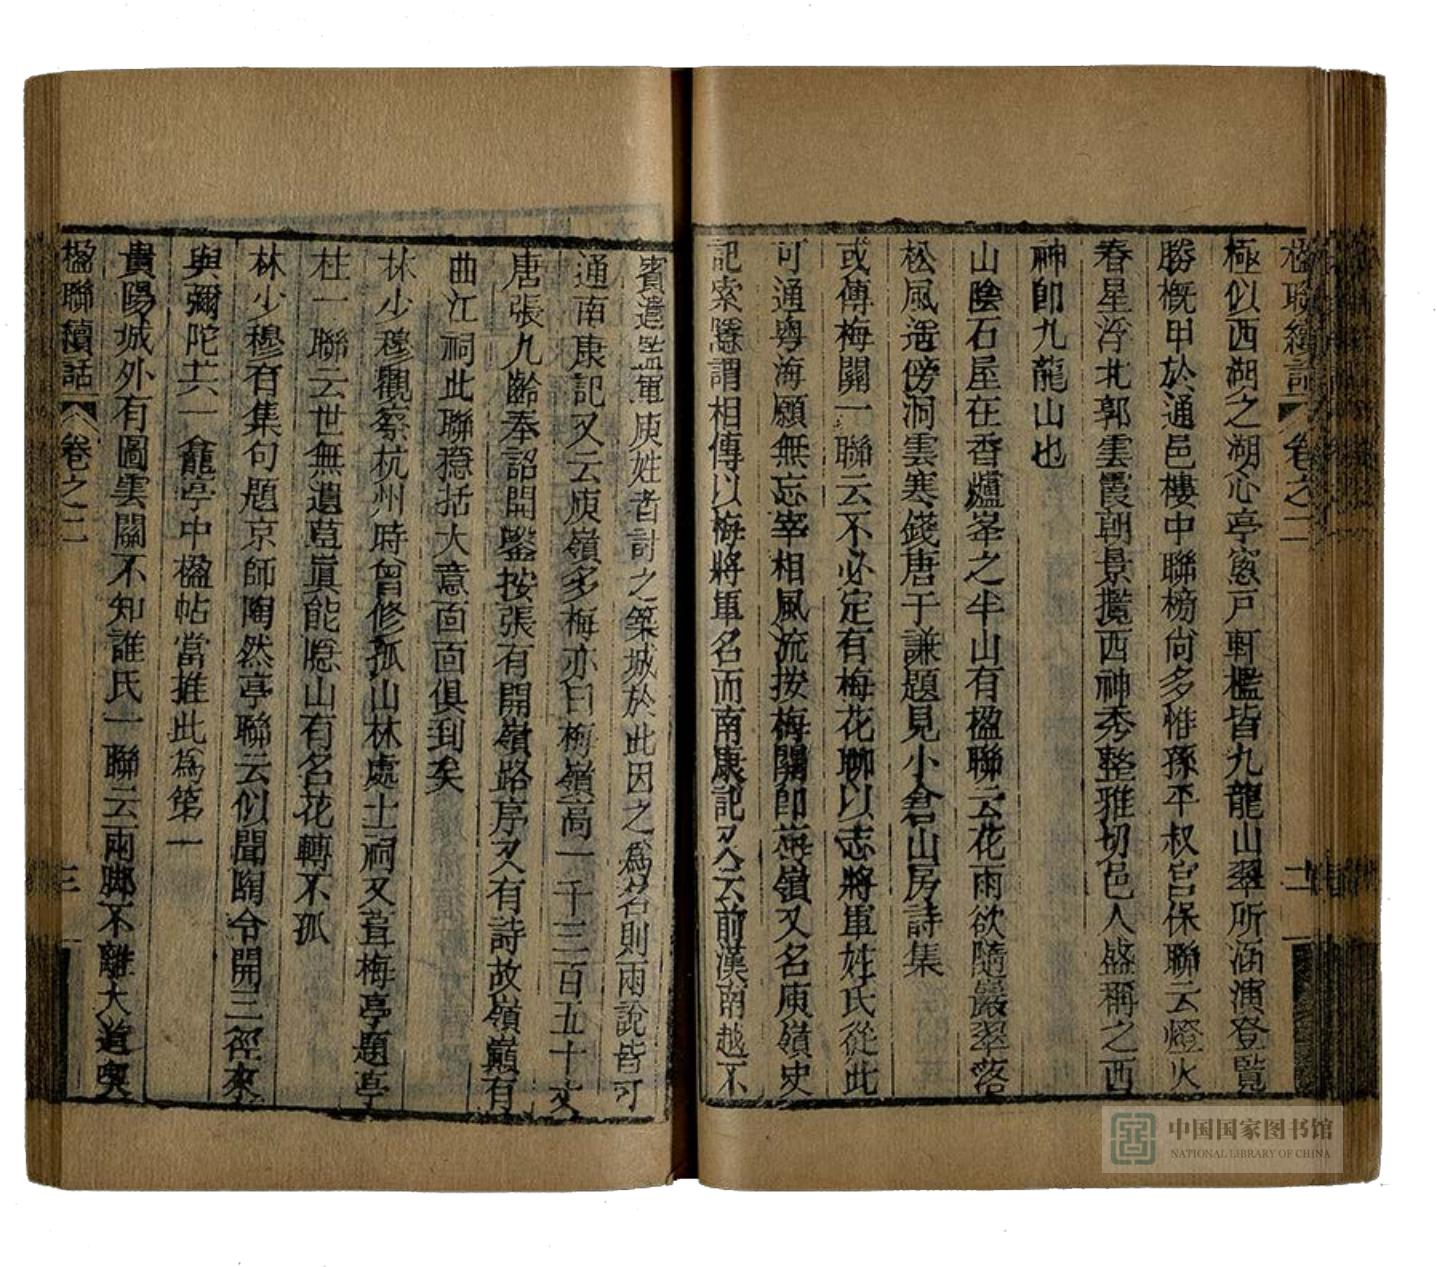 楹聯續話 卷之二 二
極似西湖之湖心亭窻戸軒檻皆九龍山翠所涵演登覧
勝概甲於通邑樓中聯榜尙多惟孫平叔宫保聯云燈火
春星浮北郭雲霞朝景攬西神秀整雅切邑人盛稱之西
神卽九龍山也
山陰石屋在香爐峯之半山有楹聯云花雨欲隨巖翠落
松風遥傍洞雲寒錢唐于謙題見小倉山房詩集
或傳梅關一聯云不必定有梅花聊以志將軍姓氏從此
可通粤海願無忘宰相風流按梅關卽梅嶺又名庾嶺史
記索隱謂相傳以梅將軍名而南康記又云前漢南越不
賓遣監軍庾姓者討之築城於此因之爲名則兩說皆可
通南康記又云庾嶺多梅亦曰梅嶺高一千三百五十丈
唐張九齡奉詔開鑿按張有開嶺路序又有詩故嶺巔有
曲江祠此聯檃括大意面面俱到矣
林少穆觀察杭州時曾修孤山林處士祠又葺梅亭題亭
柱一聯云世無遺草眞能隱山有名花轉不孤
林少穆有集句題京師陶然亭聯云似聞陶令開三徑來
與彌陀共一龕亭中楹帖當推此爲第一
貴陽城外有圖雲關不知誰氏一聯云兩脚不離大道喫
楹聯續話 卷之二 三
中国国家图书馆
NATIONAL LIBRARY OF CHINA